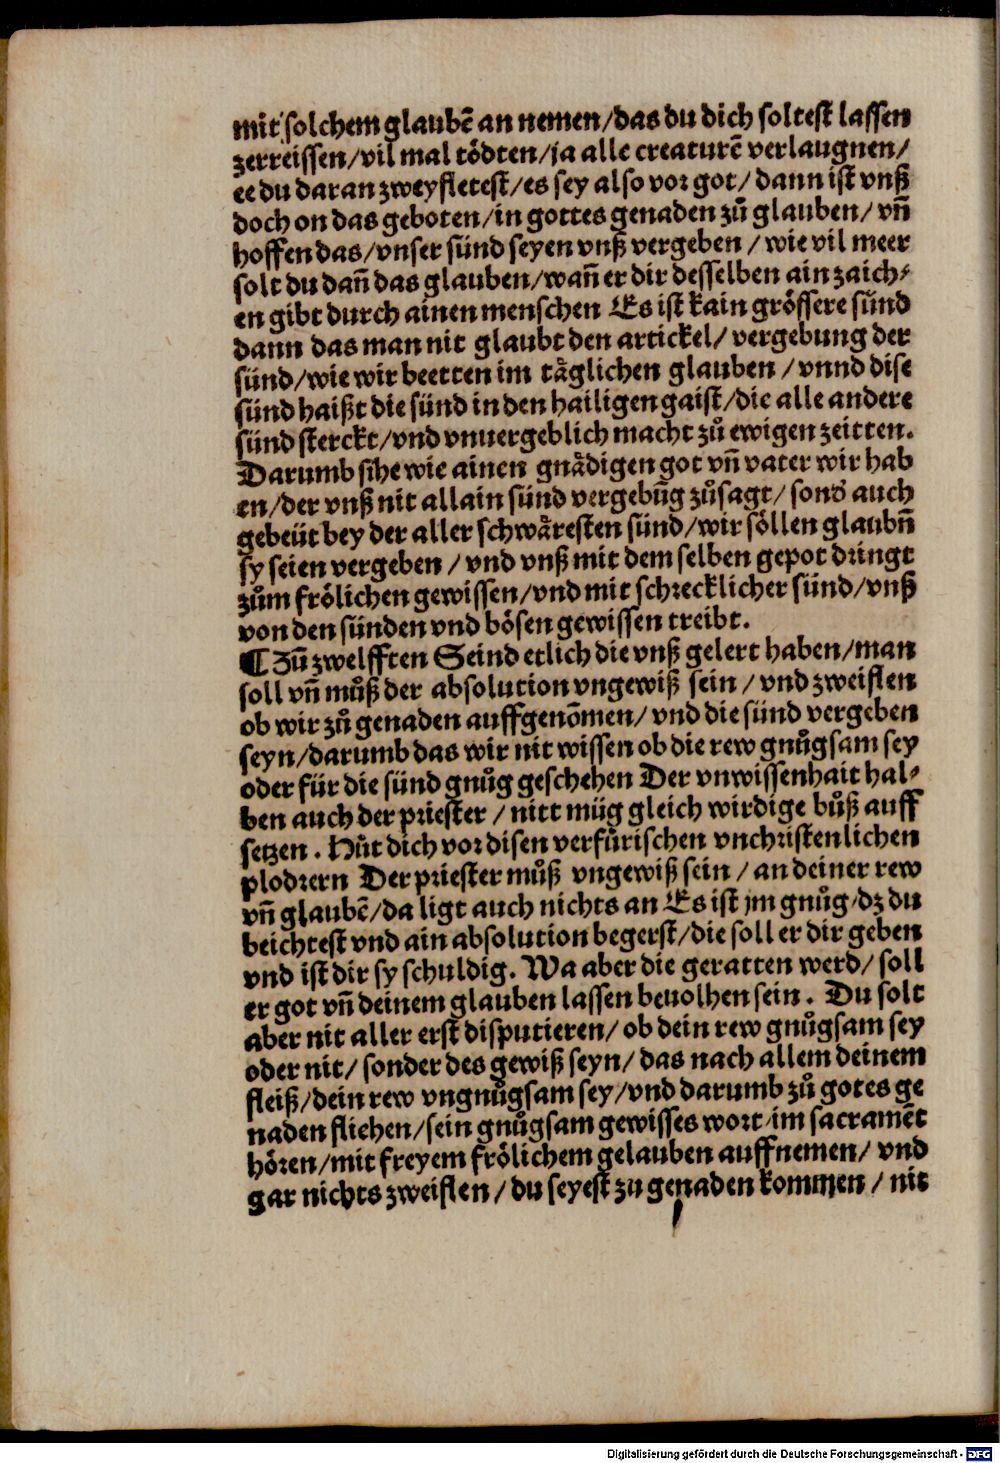 mit solchem glaubē an nemen/das du dich soltest lassen
zerreissen/vil mal tödten/ja alle creaturē verlaugnen/
ee du daran zweyfletest/es sey also vor got/ dann ist vnß
doch on das geboten/in gottes genaden zů glauben/ vñ
hoffen das/vnser sünd seyen vnß vergeben / wie vil meer
solt du dañ das glauben/wañ er dir desselben ain zaich⸗
en gibt durch ainen menschen Es ist kain grössere sünd
dann das man nit glaubt den artickel/ vergebung der
sünd/wie wir beetten im täglichen glauben / vnnd dise
sünd haißt die sünd in den hailigen gaist/die alle andere
sünd sterckt/vnd vnuergeblich macht zů ewigen zeitten.
Darumb sihe wie ainen gnädigen got vñ vater wir hab
en/der vnß nit allain sünd vergebūg zůsagt/ sond̄ auch
gebeüt bey der aller schwäresten sünd/wir söllen glaubñ
sy seien vergeben / vnd vnß mit dem selben gepot dringt
zům frölichen gewissen/vnd mit schrecklicher sünd/vnß
von den sünden vnd bösen gewissen treibt.
¶Zů zwelfften Seind etlich die vnß gelert haben/man
soll vñ můß der absolution vngewiß sein / vnd zweiflen
ob wir zů genaden auffgenōmen/ vnd die sünd vergeben
seyn/darumb das wir nit wissen ob die rew gnůgsam sey
oder für die sünd gnůg geschehen Der vnwissenhait hal⸗
ben auch der priester / nitt müg gleich wirdige bůß auff
setzen. Hůt dich vor disen verfůrischen vnchristenlichen
plodrern Der priester můß vngewiß sein / an deiner rew
vñ glaubē/da ligt auch nichts an Es ist jm gnůg/dz du
beichtest vnd ain absolution begerst/die soll er dir geben
vnd ist dir sy schuldig. Wa aber die geratten werd/ soll
er got vñ deinem glauben lassen beuolhen sein. Du solt
aber nit aller erst disputieren/ ob dein rew gnůgsam sey
oder nit/ sonder des gewiß seyn/ das nach allem deinem
fleiß/dein rew vngnůgsam sey/vnd darumb zů gotes ge
naden fliehen/sein gnůgsam gewisses wort/im sacramēt
hören/mit freyem frölichem gelauben auffnemen/ vnd
gar nichts zweiflen/ du seyest zu genaden kommen / nit
Digitalisierung gefördert durch die Deutsche Forschungsgemeinschaft - DFG